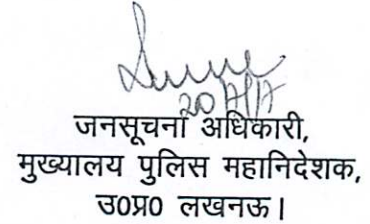 जनसूचना अधिकारी,
मुख्यालय पुलिस महानिदेशक,
उ0प्र0 लखनऊ।